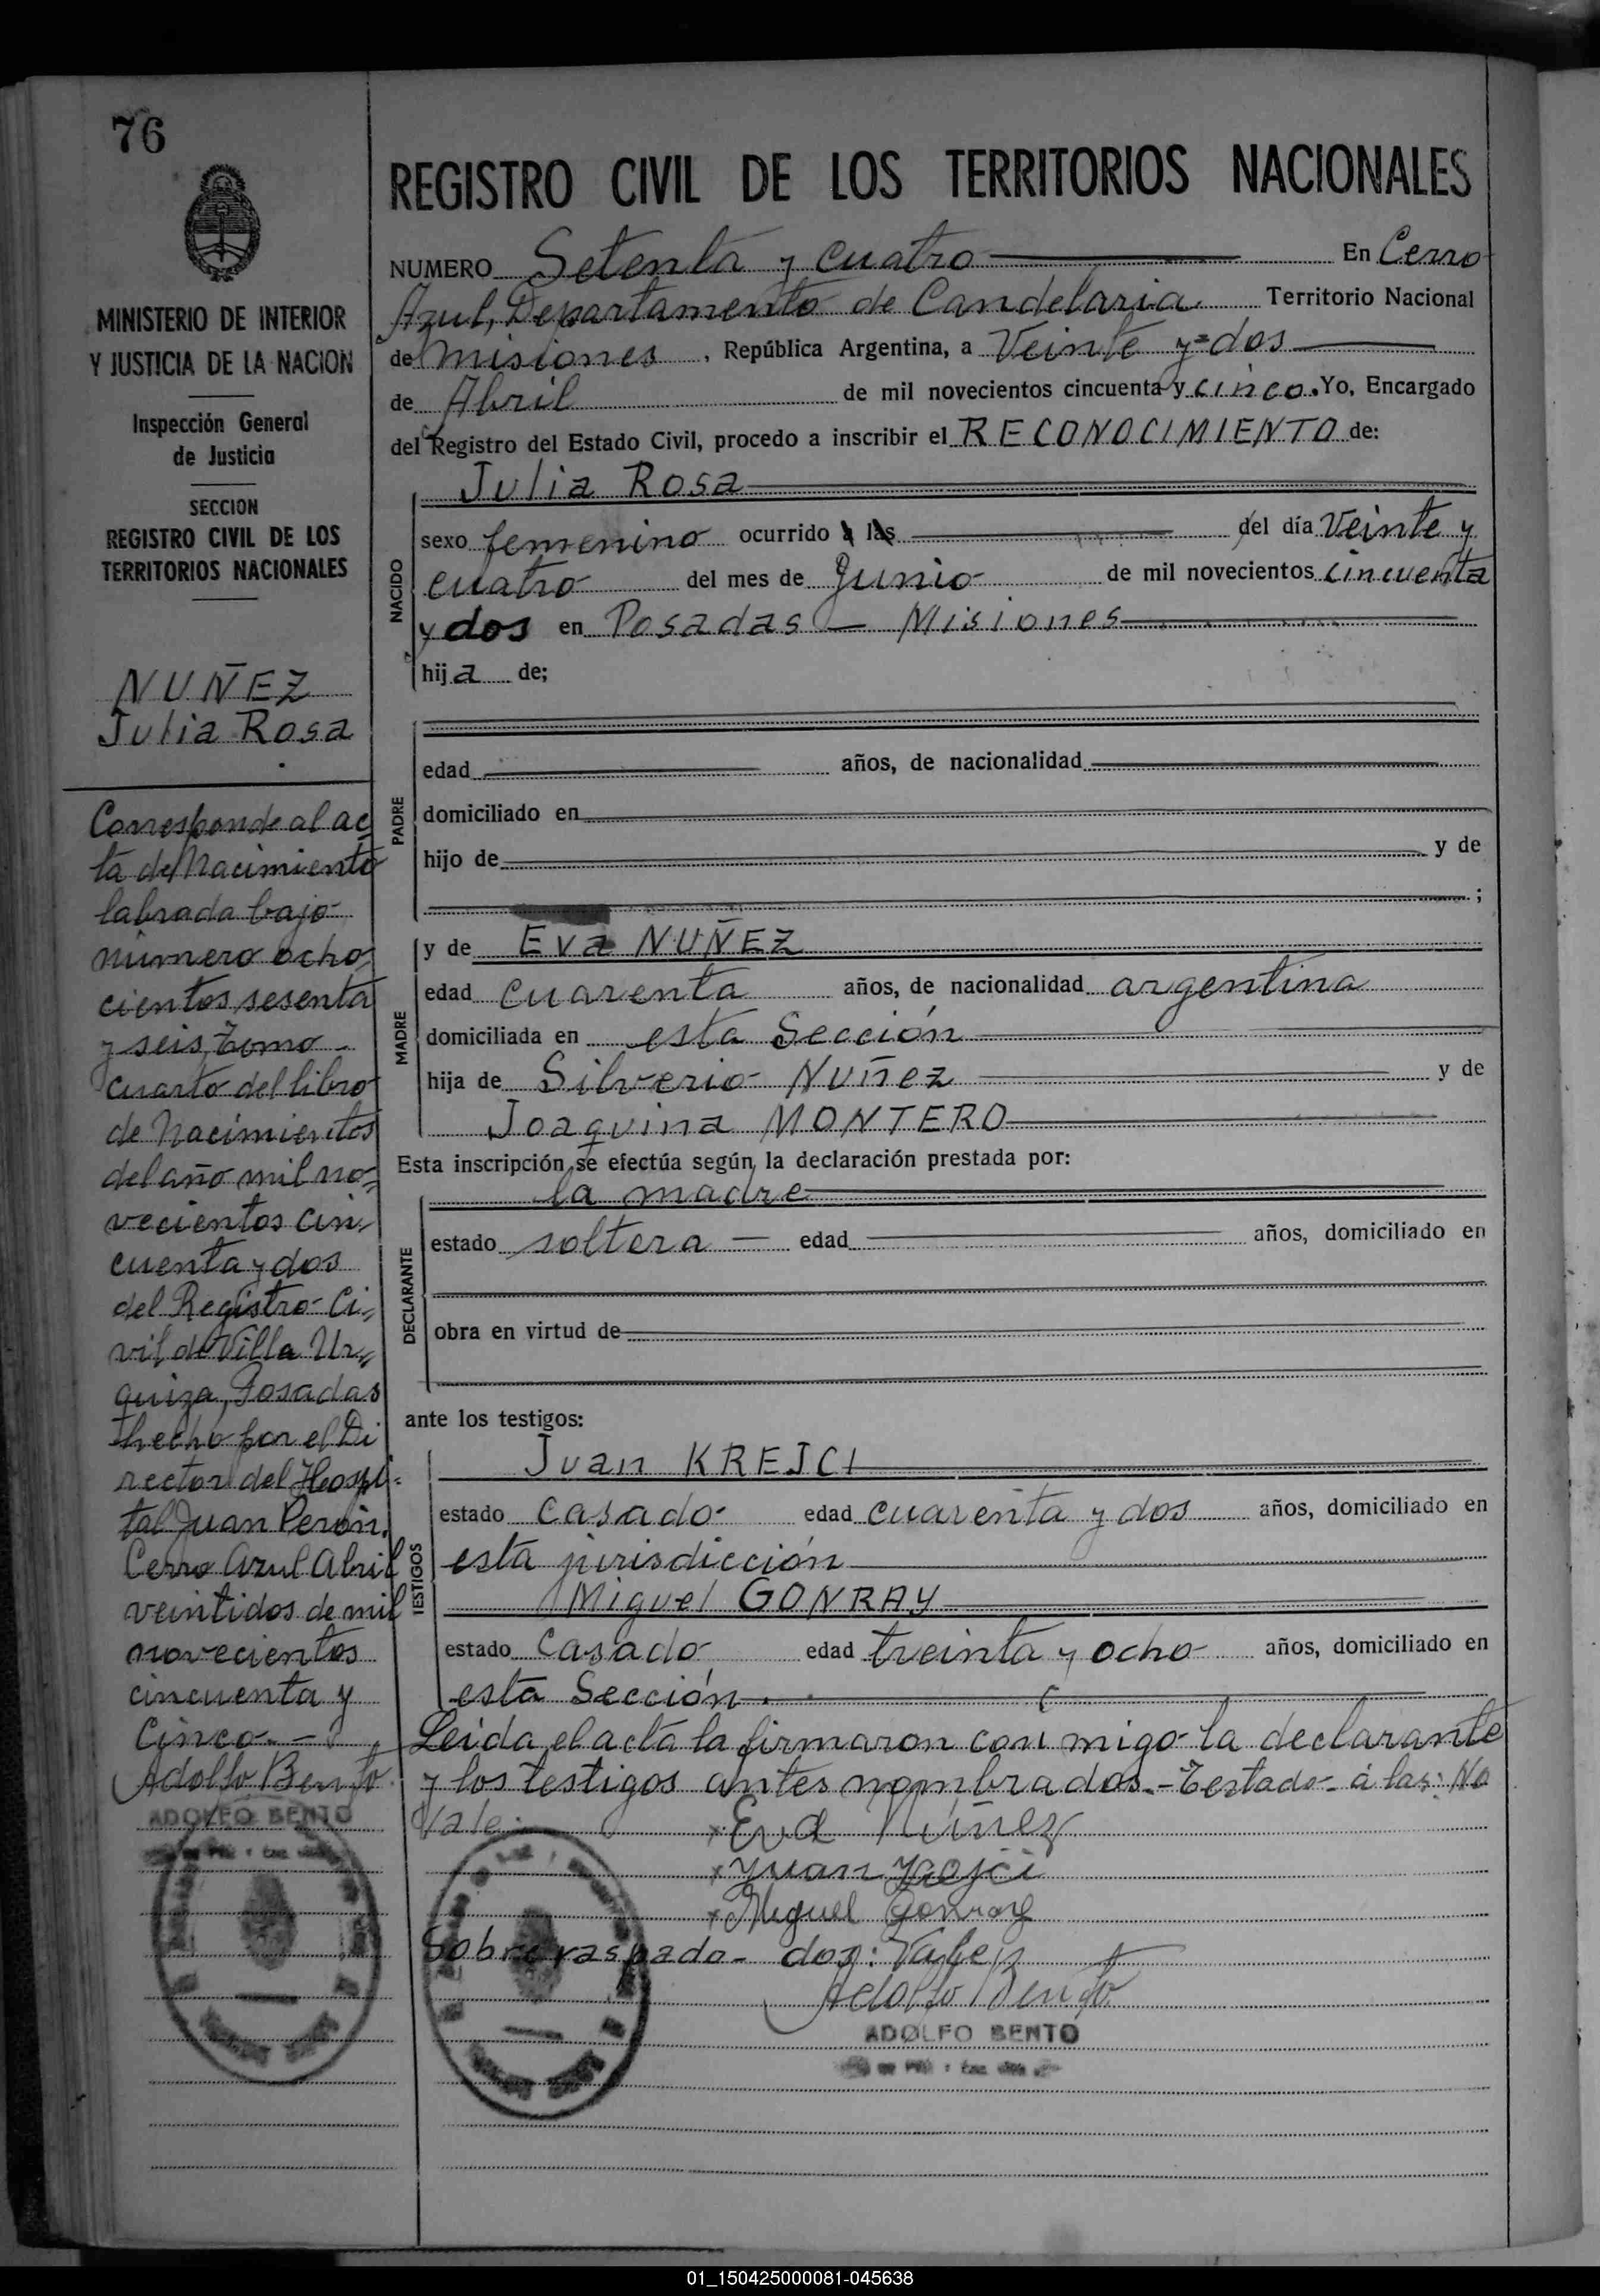 76
MINISTERIO DE INTERIOR
Y JUSTICIA DE LA NACION
Inspección General
de Justicia
SECCION
REGISTRO CIVIL DE LOS
TERRITORIOS NACIONALES
NUÑEZ
Julia Rosa
Corresponde al ac=
ta de Nacimiento
labrada bajo
número ocho=
cientos sesenta
y seis, Tomo
cuarto del libro
de Nacimientos
del año mil no=
vecientos cin=
cuenta y dos
del Registro Ci=
vil de Villa Ur=
quiza, Posadas
hecho por el Di
rector del Hospi=
tal Juan Perón.
Cerro Azul Abril
veintidos de mil
novecientos
cincuenta y
Cinco.-
Adolfo Bento
ADOLFO BENTO
REGISTRO CIVIL DE LOS TERRITORIOS NACIONALES
NUMERO Setenta y cuatro En Cerro
Azul, Departamento de Candelaria Territorio Nacional
de Misiones, República Argentina, a Veinte y=dos
de Abril de mil novecientos cincuenta y cinco. Yo, Encargado
del Registro del Estado Civil, procedo a inscribir el RECONOCIMIENTO de:
Julia Rosa
NACIDO
sexo femenino ocurrido a las del día Veinte y
cuatro del mes de Junio de mil novecientos cincuenta
y dos en Posadas — Misiones
hija de;
PADRE
edad años, de nacionalidad
domiciliado en
hijo de y de
;
MADRE
y de Eva NUÑEZ
edad cuarenta años, de nacionalidad argentina
domiciliada en esta Sección
hija de Silverio Nuñez y de
Joaquina MONTERO
Esta inscripción se efectúa según la declaración prestada por:
DECLARANTE
la madre
estado soltera — edad años, domiciliado en
obra en virtud de
ante los testigos:
TESTIGOS
Juan KREJCI
estado Casado edad cuarenta y dos años, domiciliado en
esta jurisdicción
Miguel GONRAY
estado Casado edad treinta y ocho años, domiciliado en
esta Sección.
Leida el acta la firmaron con migo la declarante
y los testigos antes nombrados.- Testado- á las: No
Vale.
x Eva Núñez
x Juan
x Miguel Gonray
Sobre raspado- dos: Vale
Adolfo Bento
ADOLFO BENTO
01_150425000081-045638